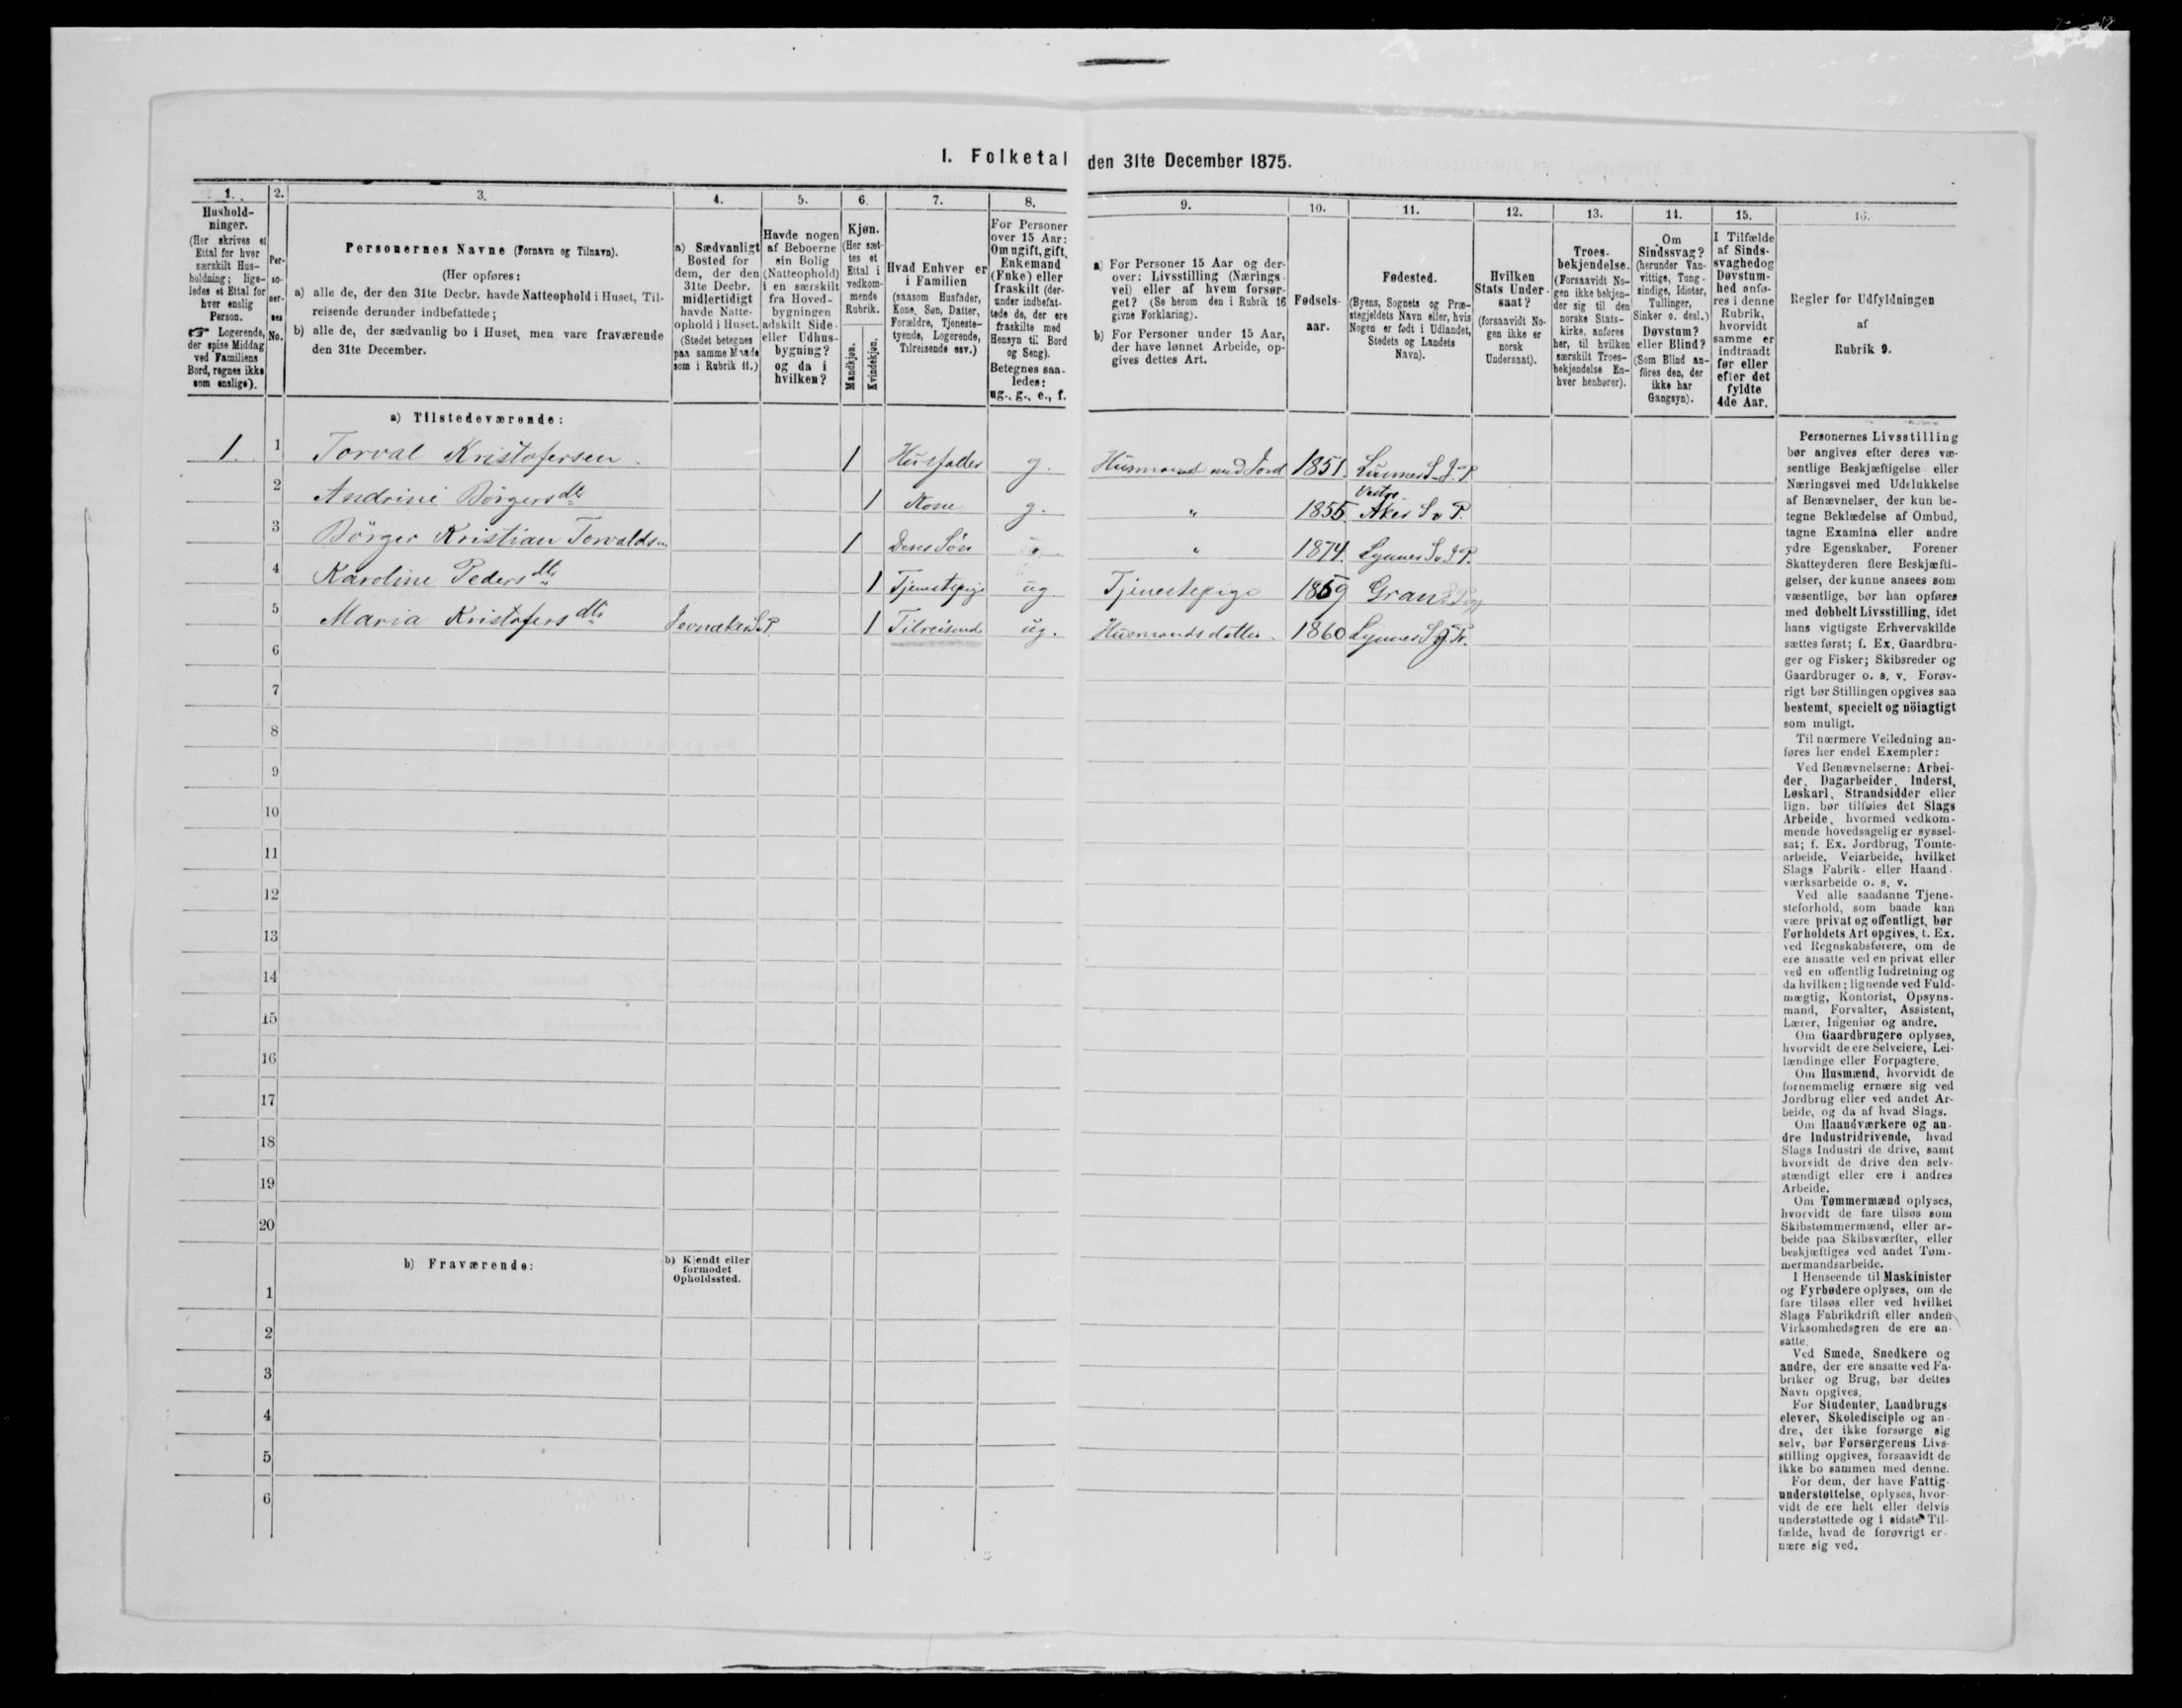 I. Folketal den 31te December 1875.
1. 2. 3. 4. 5. 6. 7. 8. 9. 10. 11. 12. 13. 14. 15. 16.
Hushold-
ninger.
(Her skrives et
Ettal for hver
særskilt Hus-
holdning; lige-
ledes et Ettal for
hver enslig
Person.
☞ Logerende,
der spise Middag
ved Familiens
Bord, regnes ikke
som enslige).
Per-
so-
ner-
nes
No.
Personernes Navne (Fornavn og Tilnavn).
(Her opføres:
a) alle de, der den 31te Decbr. havde Natteophold i Huset, Til-
reisende derunder indbefattede;
b) alle de, der sædvanlig bo i Huset, men vare fraværende
den 31te December.
a) Sædvanligt
Bosted for
dem, der den
31te Decbr.
midlertidigt
havde Natte-
ophold i Huset.
(Stedet betegnes
paa samme Maade
som i Rubrik 11.)
Havde nogen
af Beboerne
sin Bolig
(Natteophold)
i en særskilt
fra Hoved-
bygningen
adskilt Side-
eller Udhus-
bygning?
og da i
hvilken?
Kjøn.
(Her sæt-
tes et
Ettal i
vedkom-
mende
Rubrik.
Mandkjøn.
Kvindekjøn.
Hvad Enhver er
i Familien
(saasom Husfader,
Kone, Søn, Datter,
Forældre, Tjeneste-
tyende, Logerende,
Tilreisende osv.)
For Personer
over 15 Aar:
Om ugift, gift,
Enkemand
(Enke) eller
fraskilt (der-
under indbefat-
tede de, der ere
fraskilte med
Hensyn til Bord
og Seng).
Betegnes saa-
ledes:
ug., g., e., f.
a) For Personer 15 Aar og der-
over: Livsstilling (Nærings-
vei) eller af hvem forsør-
get? (Se herom den i Rubrik 16
givne Forklaring).
b) For Personer under 15 Aar,
der have lønnet Arbeide, op-
gives dettes Art.
Fødsels-
aar.
Fødested.
(Byens, Sognets og Præ-
stegjeldets Navn eller, hvis
Nogen er født i Udlandet,
Stedets og Landets
Navn).
Hvilken
Stats Under-
saat?
(forsaavidt No-
gen ikke er
norsk
Undersaat).
Troes-
bekjendelse.
(Forsaavidt No-
gen ikke bekjen-
der sig til den
norske Stats-
kirke, anføres
her, til hvilken
særskilt Troes-
bekjendelse En-
hver henhører).
Om
Sindssvag?
(herunder Van-
vittige, Tung-
sindige, Idioter,
Tullinger,
Sinker o. desl.)
Døvstum?
eller Blind?
(Som Blind an-
føres den, der
ikke har
Gangsyn).
I Tilfælde
af Sinds-
svaghed og
Døvstum-
hed anfø-
res i denne
Rubrik,
hvorvidt
samme er
indtraadt
før eller
efter det
fyldte
4de Aar.
Regler for Udfyldningen
af
Rubrik 9.
a) Tilstedeværende:
1. 1 Torval Kristofersen. 1 Husfader g. Husmand med Jord 1851. Lunner S. J. P.
2 Andrine Börgersdtr 1 Kone g. " 1855 Vestre Aker S. P.
3 Börger Kristian Torvaldsn. 1 Deres Sön " 1874. Lynner S. J. P.
4 Karoline Pedersdtr 1 Tjenestepige ug. Tjenestepige 1859 Gran
5 Maria Kristofersdtr Jevnaker S. P. 1 Tilreisende ug. Husmandsdatter. 1860 Lynner S. J. Pr.
6
7
8
9
10
11
12
13
14
15
16
17
18
19
20
b) Fraværende:
b) Kjendt eller
formodet
Opholdssted.
1
2
3
4
5
6
Personernes Livsstilling
bør angives efter deres væ-
sentlige Beskjæftigelse eller
Næringsvei med Udelukkelse
af Benævnelser, der kun be-
tegne Beklædelse af Ombud,
tagne Examina eller andre
ydre Egenskaber. Forener
Skatteyderen flere Beskjæfti-
gelser, der kunne ansees som
væsentlige, bør han opføres
med dobbelt Livsstilling, idet
hans vigtigste Erhvervskilde
sættes først; f. Ex. Gaardbru-
ger og Fisker; Skibsreder og
Gaardbruger o. s. v. Forøv-
rigt bør Stillingen opgives saa
bestemt, specielt og nöiagtigt
som muligt.
Til nærmere Veiledning an-
føres her endel Exempler:
Ved Benævnelserne: Arbei-
der, Dagarbeider, Inderst,
Løskarl, Strandsidder eller
lign. bør tilføies det Slags
Arbeide, hvormed vedkom-
mende hovedsagelig er syssel-
sat; f. Ex. Jordbrug, Tomte-
arbeide, Veiarbeide, hvilket
Slags Fabrik- eller Haand-
værksarbeide o. s. v.
Ved alle saadanne Tjene-
steforhold, som baade kan
være privat og offentligt, bør
Forholdets Art opgives, t. Ex.
ved Regnskabsførere, om de
ere ansatte ved en privat eller
ved en offentlig Indretning og
da hvilken; lignende ved Fuld-
mægtig, Kontorist, Opsyns-
mand, Forvalter, Assistent,
Lærer, Ingeniør og andre.
Om Gaardbrugere oplyses,
hvorvidt de ere Selveiere, Lei-
lændinge eller Forpagtere.
Om Husmænd, hvorvidt de
fornemmelig ernære sig ved
Jordbrug eller ved andet Ar-
beide, og da af hvad Slags.
Om Haandværkere og an-
dre Industridrivende, hvad
Slags Industri de drive, samt
hvorvidt de drive den selv-
stændigt eller ere i andres
Arbeide.
Om Tømmermænd oplyses,
hvorvidt de fare tilsøs som
Skibstømmermænd, eller ar-
beide paa Skibsværfter, eller
beskjæftiges ved andet Tøm-
mermandsarbeide.
I Henseende til Maskinister
og Fyrbødere oplyses, om de
fare tilsøs eller ved hvilket
Slags Fabrikdrift eller anden
Virksomhedsgren de ere an-
satte.
Ved Smede, Snedkere og
andre, der ere ansatte ved Fa-
briker og Brug, bør dettes
Navn opgives.
For Studenter, Landbrugs-
elever, Skoledisciple og an-
dre, der ikke forsørge sig
selv, bør Forsørgerens Livs-
stilling opgives, forsaavidt de
ikke bo sammen med denne.
For dem, der have Fattig-
understøttelse, oplyses, hvor-
vidt de ere helt eller delvis
understøttede og i sidste Til-
fælde, hvad de forøvrigt er-
nære sig ved.